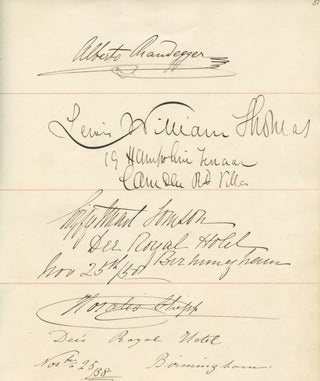 51
Alberto Randegger
Lewis William Thomas
19 Hampshire Terrace
Camden Rd Villas
Stuart Tomson
Dee Royal Hotel
Nov 25th/58 Birmingham
Horatio Chipp
Dee's Royal Hotel
Novbr 25/58 Birmingham.